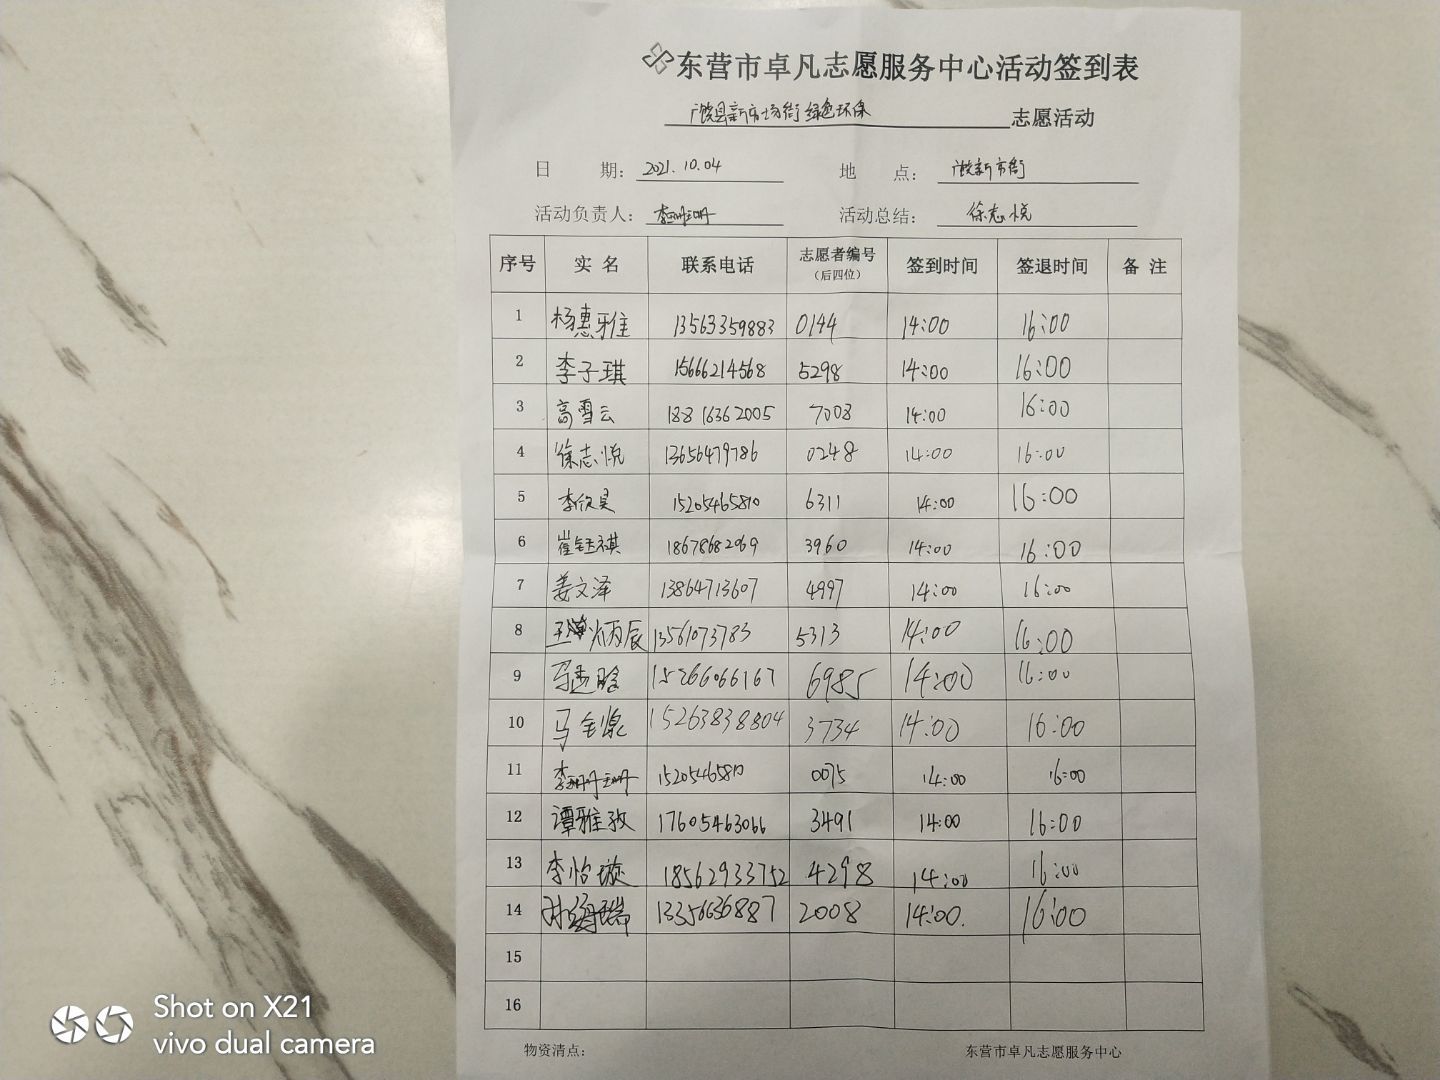 东营市卓凡志愿服务中心活动签到表
广饶县新市场街绿色环保 志愿活动
日 期： 2021.10.04 地 点： 广饶新市街
活动负责人： 李珊珊 活动总结： 徐志悦
序号 实名 联系电话 志愿者编号（后四位） 签到时间 签退时间 备注
1 杨惠雅 13563359883 0144 14:00 16:00
2 李子琪 15666214568 5298 14:00 16:00
3 高雪云 18816362005 7008 14:00 16:00
4 徐志悦 13656479786 0248 14:00 16:00
5 李欣昊 15205465810 6311 14:00 16:00
6 崔钰祺 18678682969 3960 14:00 16:00
7 姜文泽 13864713607 4997 14:00 16:00
8 王炳辰 13561073783 5313 14:00 16:00
9 马 15266066167 6985 14:00 16:00
10 马 15263838804 3734 14:00 16:00
11 李珊珊 15205465810 0075 14:00 16:00
12 谭雅孜 17605463066 3491 14:00 16:00
13 李怡璇 18562933752 4298 14:00 16:00
14 13356636887 2008 14:00. 16:00
15
16
物资清点： 东营市卓凡志愿服务中心
Shot on X21
vivo dual camera